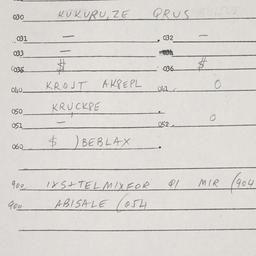 030 KUKURU, ZE QRUS
031 — . 032 —
033 —
035 $ 036 $
040 KROJT AKPEPL 041. 0
050 KRUCKPE
051 — 052. 0
060 $ ) BEBLAX .
900 MIR (904
900 ABISALE (054